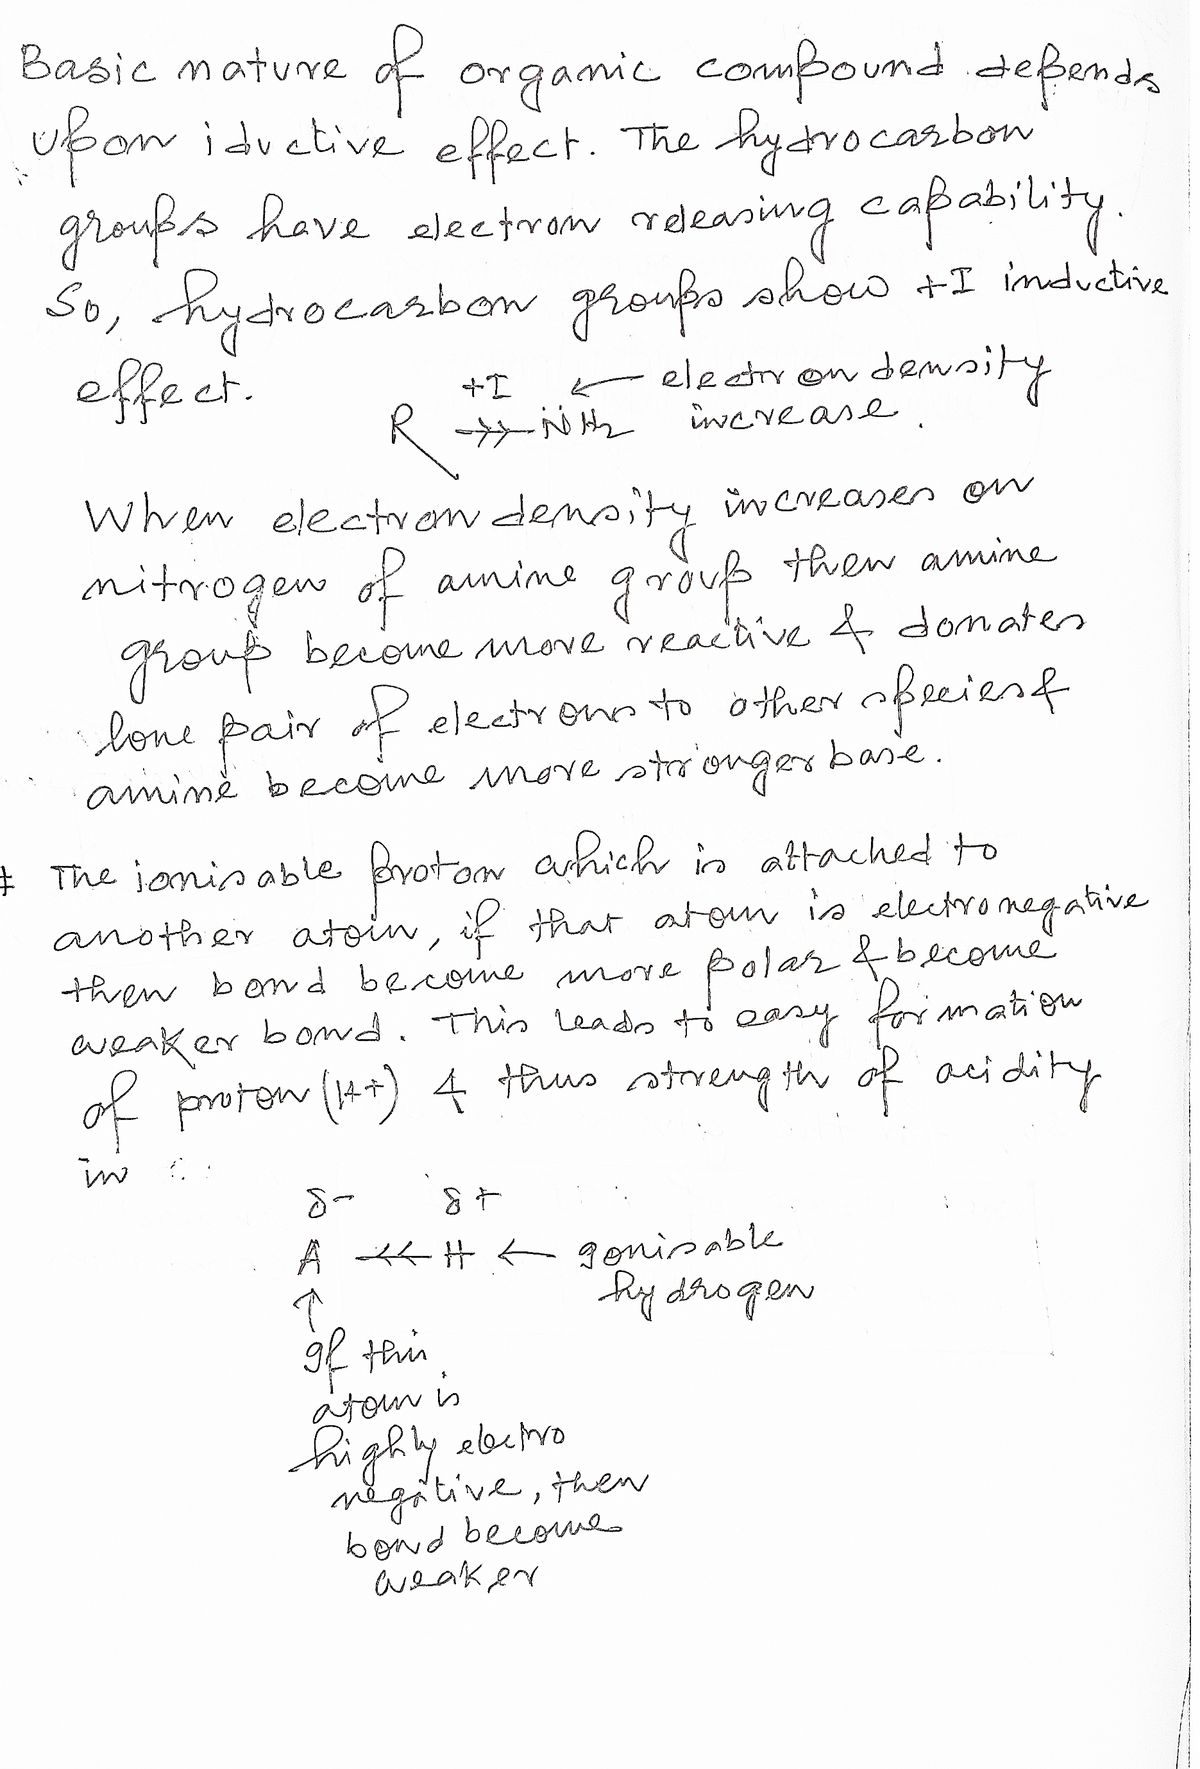 Basic nature of organic compound depends
upon iductive effect. The hydrocarbon
groups have electron releasing capability.
So, hydrocarbon groups show +I inductive
effect.
+I ← electron density
R →→ N̈H2 increase.
When electron density increases on
nitrogen of amine group then amine
group become more reactive & donates
lone pair of electrons to other species &
amine become more stronger base.
‡ The ionisable proton which is attached to
another atom, if that atom is electronegative
then bond become more polar & become
weaker bond. This leads to easy formation
of proton (H+) & thus strength of acidity
in
δ- δ+
A ←← H ← Ionisable
hydrogen
↑
If this
atom is
highly electro
negative, then
bond become
weaker